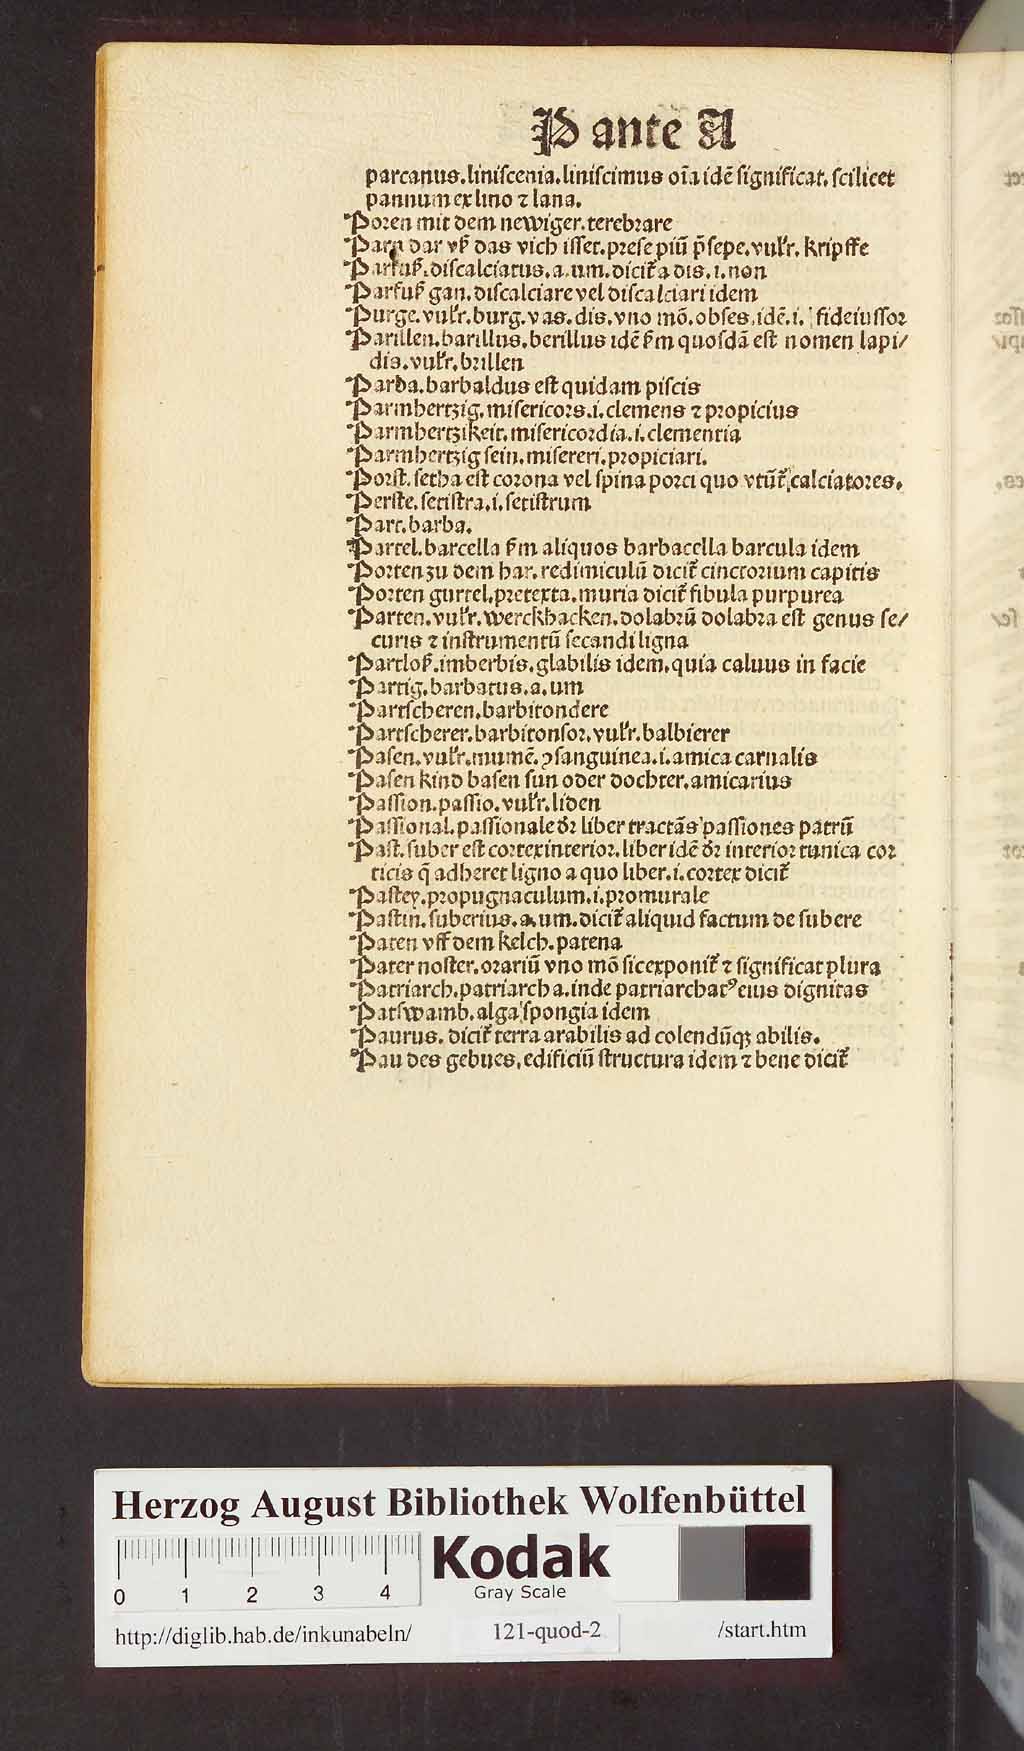 P ante A
parcanus. liniscenia. liniscimus oĩa idē significat. scilicet
pannum ex lino ⁊ lana.
Poren mit dem newiger. terebrare
Parn dar vß das vich isset. prese piũ p̄sepe. vulgr̃. kripffe
Parfuß. discalciatus. a. um. dicit᷑ a dis. i. non
Parfuß gan. discalciare vel discalciari idem
Purge. vulr̃. burg. vas. dis. vno mō. obses. idē. i. fideiussor
Parillen. barillus. berillus idē ẜm quosdā est nomen lapi/
dis. vulr̃. brillen
Parba. barbaldus est quidam piscis
Parmhertzig. misericors. i. clemens ⁊ propicius
Parmhertzikeit. misericordia. i. clementia
Parmhertzig sein. misereri. propiciari.
Porst. setha est corona vel spina porci quo vtũt᷑ calciatores.
Perste. setistra. i. setistrum
Part. barba.
Partel. barcella ẜm aliquos barbacella barcula idem
Porten zu dem har. redimiculũ dicit᷑ cinctorium capitis
Porten gurtel. pretexta. muria dicit᷑ fibula purpurea
Parten. vulr̃. werckhacken. dolabrũ dolabra est genus se/
curis ⁊ instrumentũ secandi ligna
Partloß. imberbis. glabilis idem. quia caluus in facie
Partig. barbatus. a. um
Partscheren. barbitondere
Partscherer. barbitonsor. vulr̃. balbierer
Pasen. vulr̃. mumē. ꝯsanguinea. i. amica carnalis
Pasen kind basen sun oder dochter. amicarius
Passion. passio. vulr̃. liden
Passional. passionale dr̃ liber tractās passiones patrũ
Past. suber est cortex interior. liber idē dr̃ interior tunica cor
ticis q̄ adheret ligno a quo liber. i. cortex dicit᷑
Pastey. propugnaculum. i. promurale
Pastin. suberius. a. um. dicit᷑ aliquid factum de subere
Paten vff dem kelch. patena
Pater noster. orariũ vno mō sic exponit᷑ ⁊ significat plura
Patriarch. patriarcha. inde patriarchatꝰ eius dignitas
Patswamb. alga spongia idem
Paurus. dicit᷑ terra arabilis ad colendũqꝫ abilis.
Pau des gebues. edificiũ structura idem ⁊ bene dicit᷑
Herzog August Bibliothek Wolfenbüttel
Kodak
Gray Scale
0 1 2 3 4
http://diglib.hab.de/inkunabeln/ 121-quod-2 /start.htm